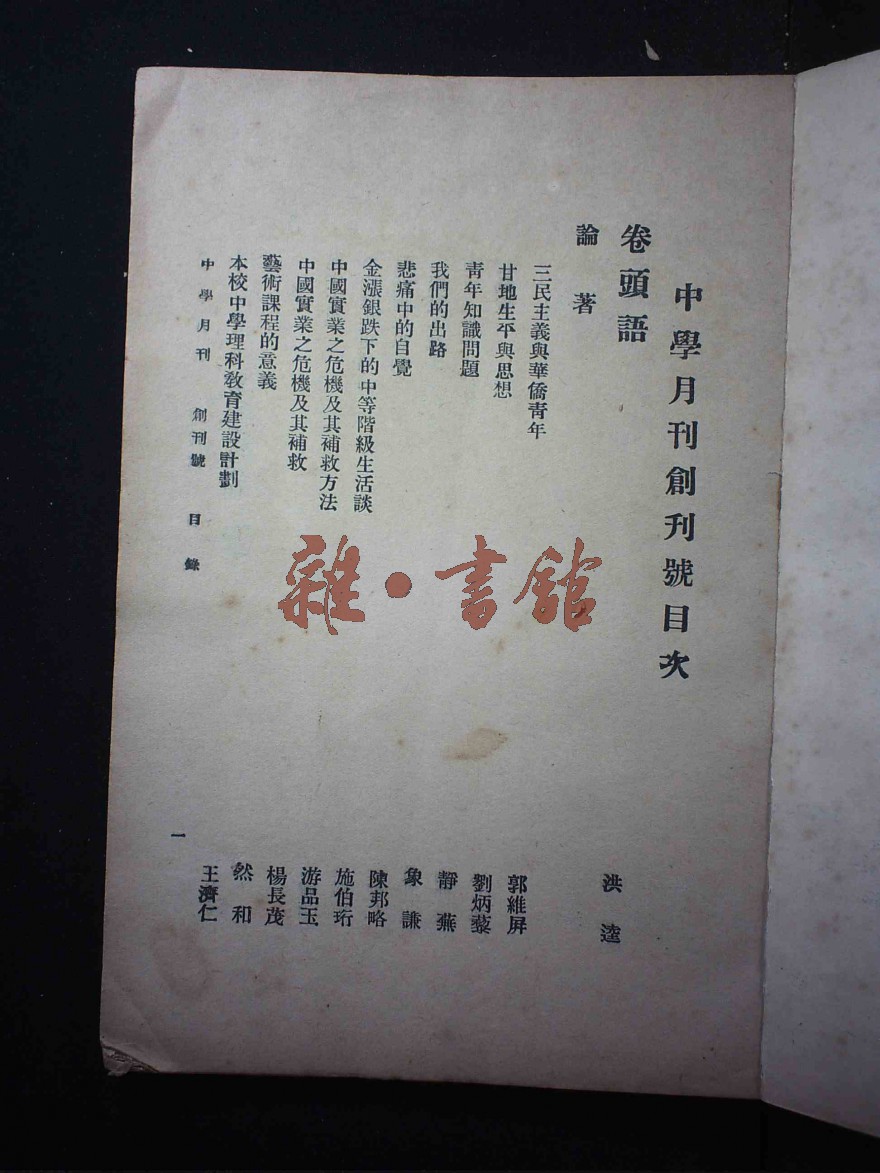 中學月刊創刊號目次
卷頭語 洪逵
論著
三民主義與華僑青年 郭維屏
甘地生平與思想 劉炳藜
青年知識問題 靜蕪
我們的出路 象謙
悲痛中的自覺 陳邦略
金漲銀跌下的中等階級生活談 施伯珩
中國實業之危機及其補救方法 游品玉
中國實業之危機及其補救 楊長茂
藝術課程的意義 然和
本校中學理科教育建設計劃 王濟仁
中學月刊 創刊號 目錄 一
雜·書館